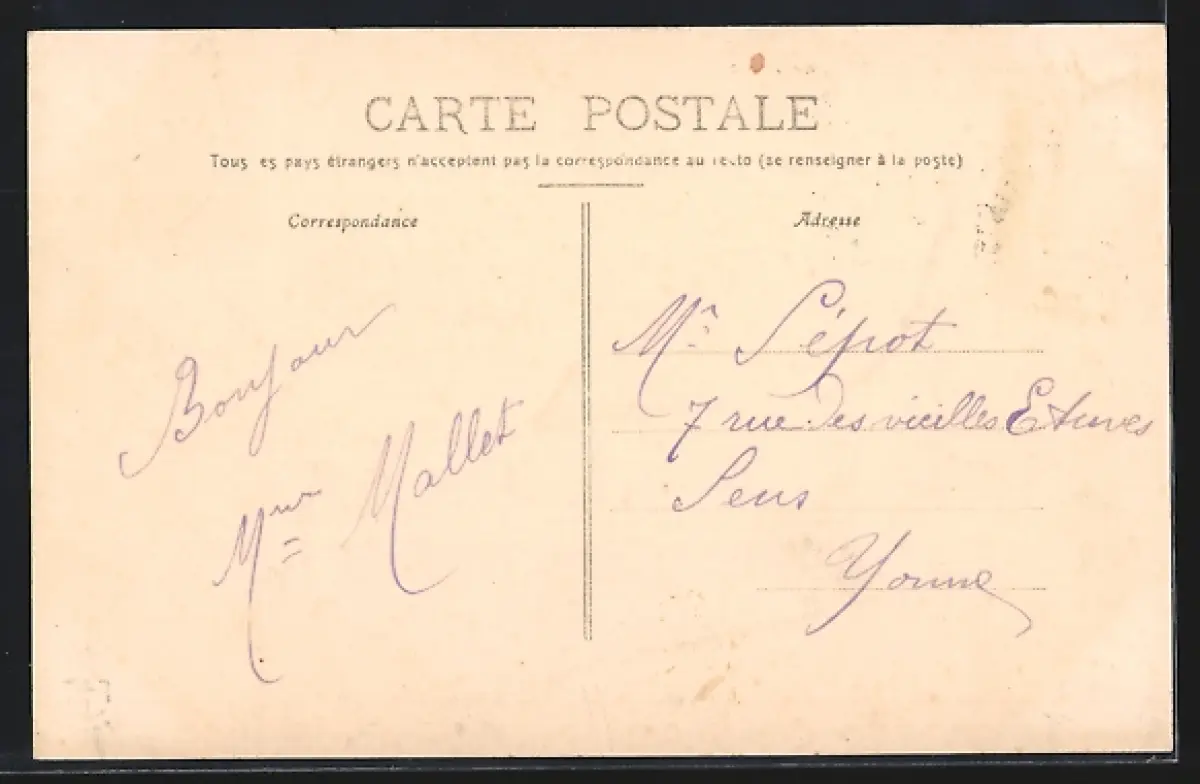 CARTE POSTALE
Tous les pays étrangers n'acceptent pas la correspondance au recto (se renseigner à la poste)
Correspondance
Adresse
Bonjour
Mme Mallet
Mr Sépot
7 rue des vieilles Etuves
Sens
Yonne